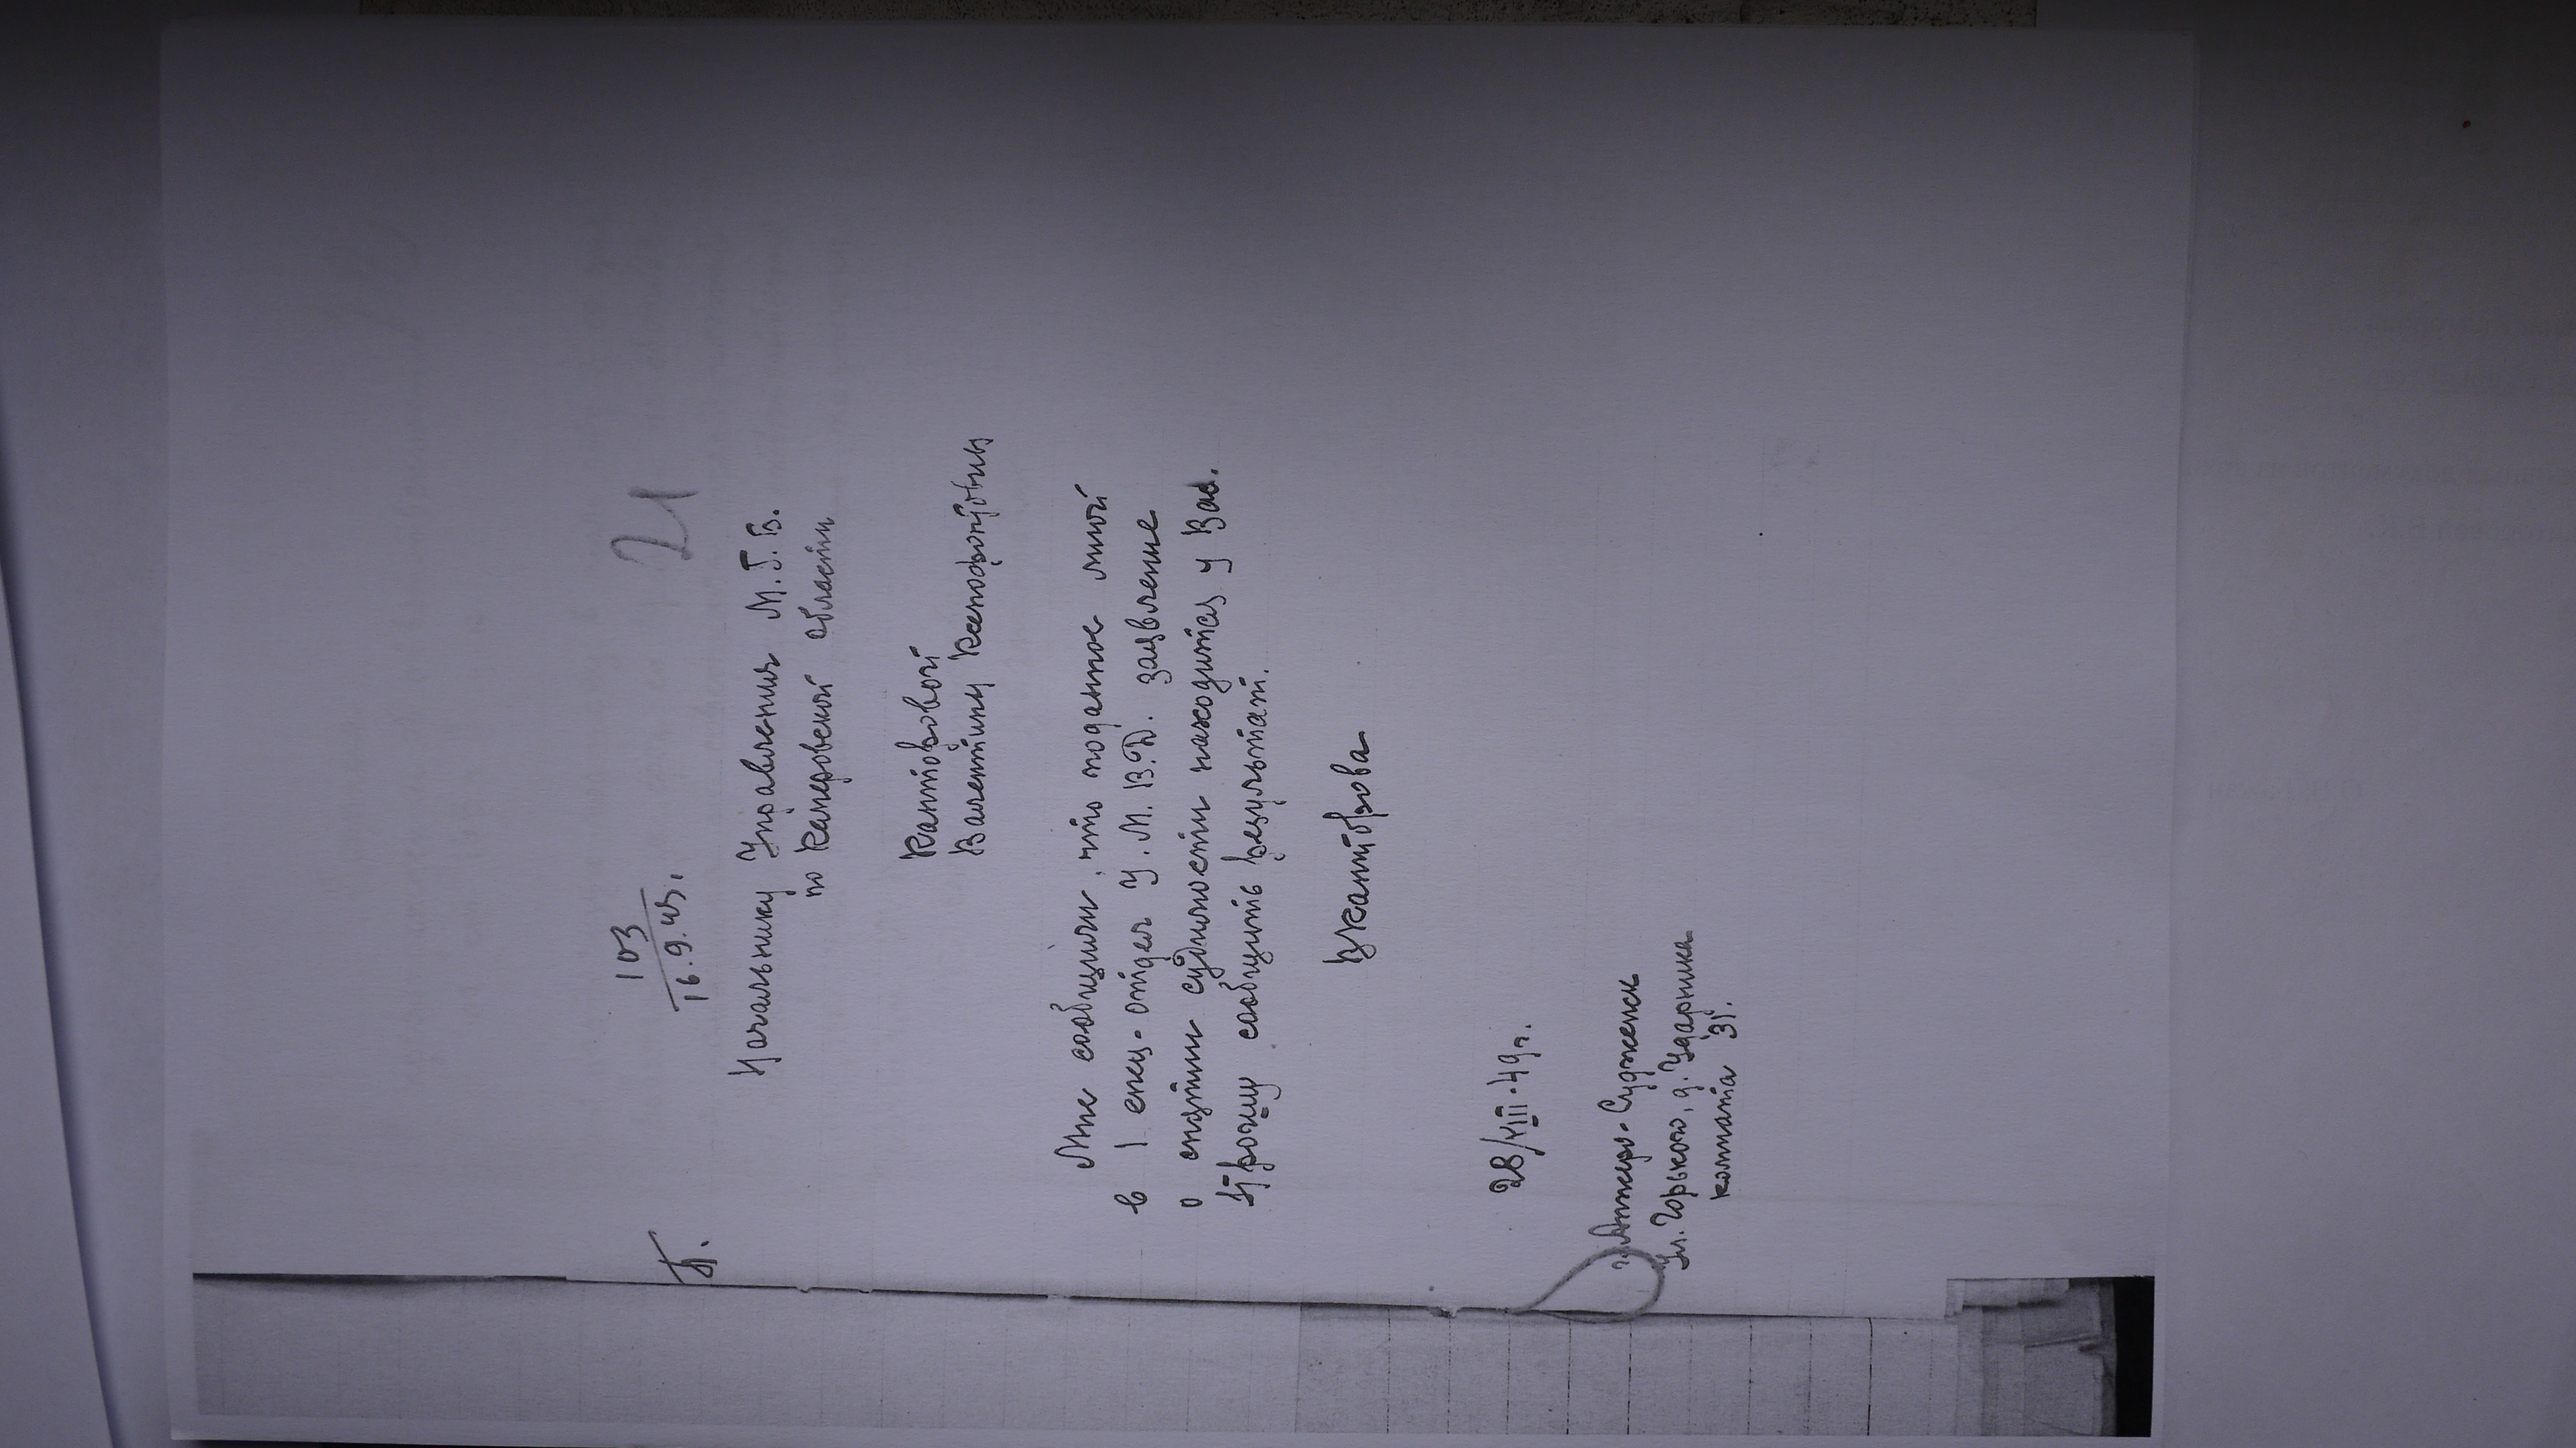 103
16.9.49.
21
Б.
Начальнику Управления М.Г.Б.
по Кемеровской области
Кантовой
Валентины Ксенофонтовны
Мне сообщили, что поданное мной
в 1 спец-отдел У.М.В.Д. заявление
о снятии судимости находится у Вас.
Прошу сообщить результат.
28/VIII-49г.
г. Анжеро-Судженск
Ул. Горького, д. Ударника
комната 31.